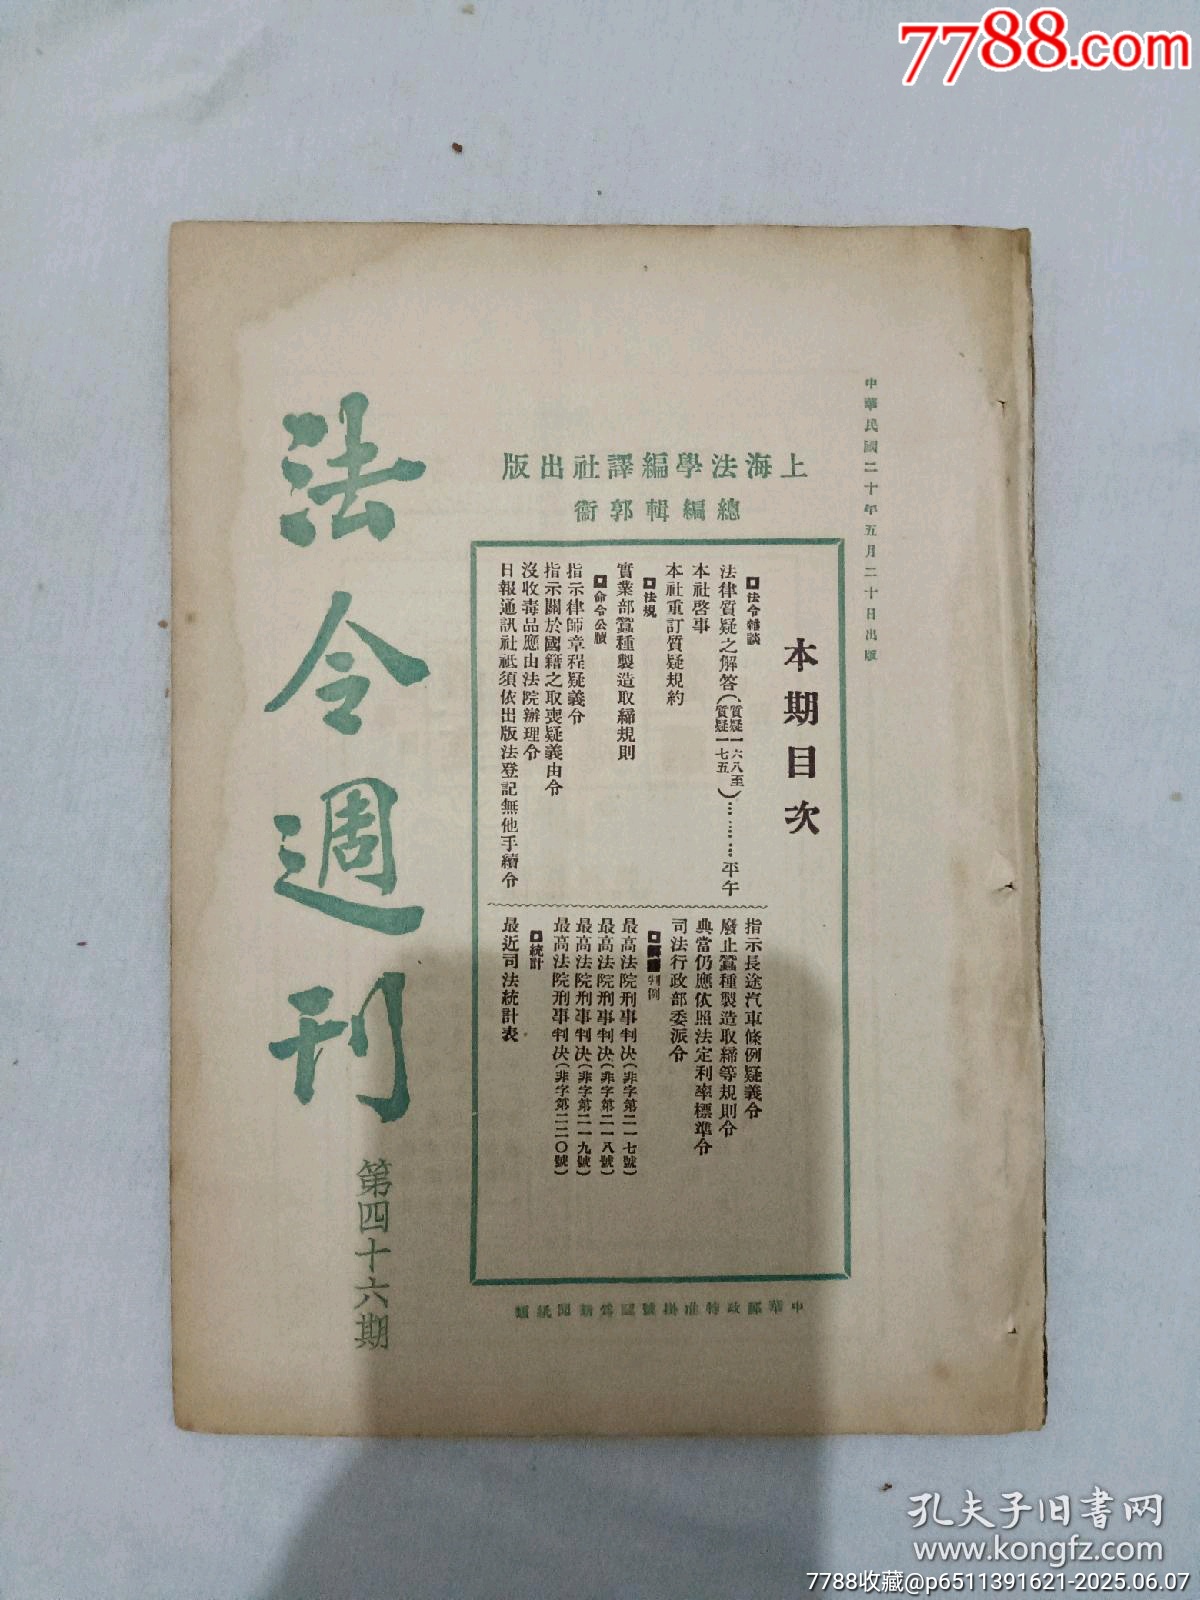 7788.com
中華民國二十年五月二十日出版
上海法學編譯社出版
總編輯郭衞
本期目次
法令雜談
法律質疑之解答(質疑一六八至質疑一七五)………平午
本社啓事
本社重訂質疑規約
法規
實業部蠶種製造取締規則
命令公牘
指示律師章程疑義令
指示關於國籍之取喪疑義由令
沒收毒品應由法院辦理令
日報通訊社祗須依出版法登記無他手續令
指示長途汽車條例疑義令
廢止蠶種製造取締等規則令
典當仍應依照法定利率標準令
司法行政部委派令
判例
最高法院刑事判決(非字第二一七號)
最高法院刑事判決(非字第二一八號)
最高法院刑事判決(非字第二一九號)
最高法院刑事判決(非字第二二〇號)
統計
最近司法統計表
中華郵政特准掛號認爲新聞紙類
法令週刊
第四十六期
孔夫子旧书网
www.kongfz.com
7788收藏@p6511391621-2025.06.07